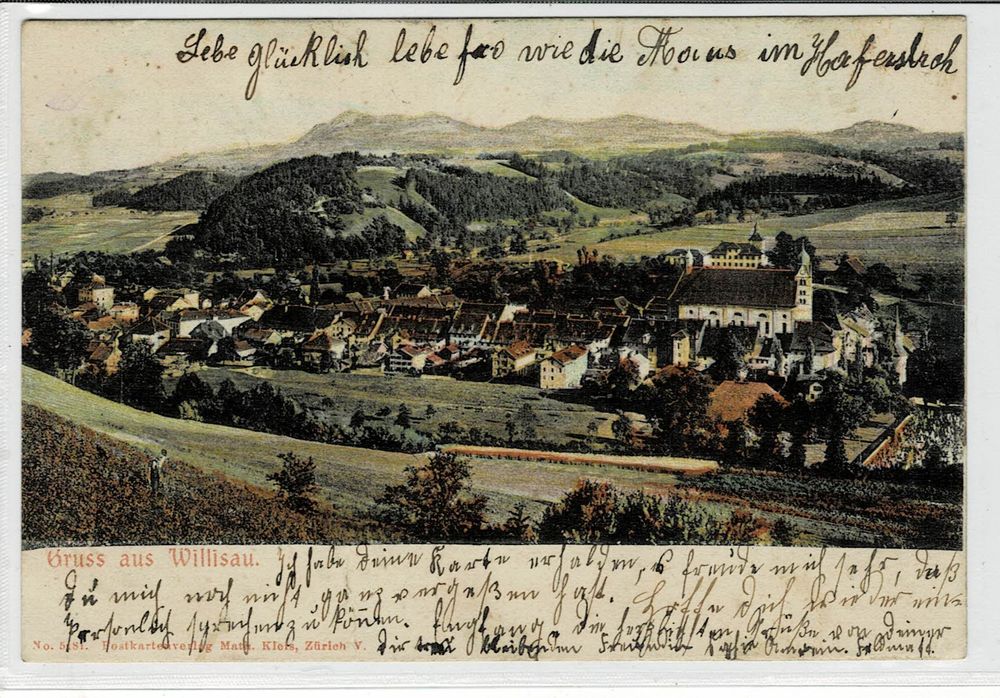 Lebe glücklich lebe fro wie die Maus im Haferstroh
Gruss aus Willisau.
Ich habe deine Karte erhalden, es freude mich sehr, daß
du mich noch nicht ganz vergeßen hast. Hoffe dich wieder ein-
persönlich sprechen zu könen. Empfange die herzlichsten Grüße von deiner
dir bleibenden Freundin
No. 5181. Postkartenverlag Math. Kleis, Zürich V.